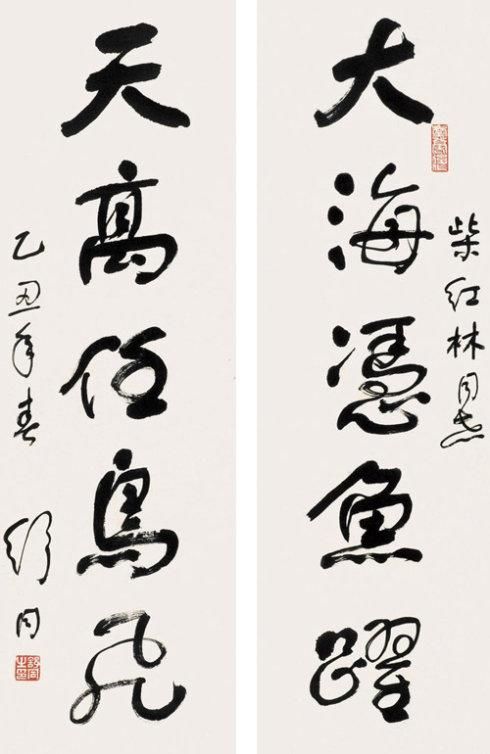 柴红林同志
大海凭鱼跃
天高任鸟飞
乙丑年春
舒同
舒同之印